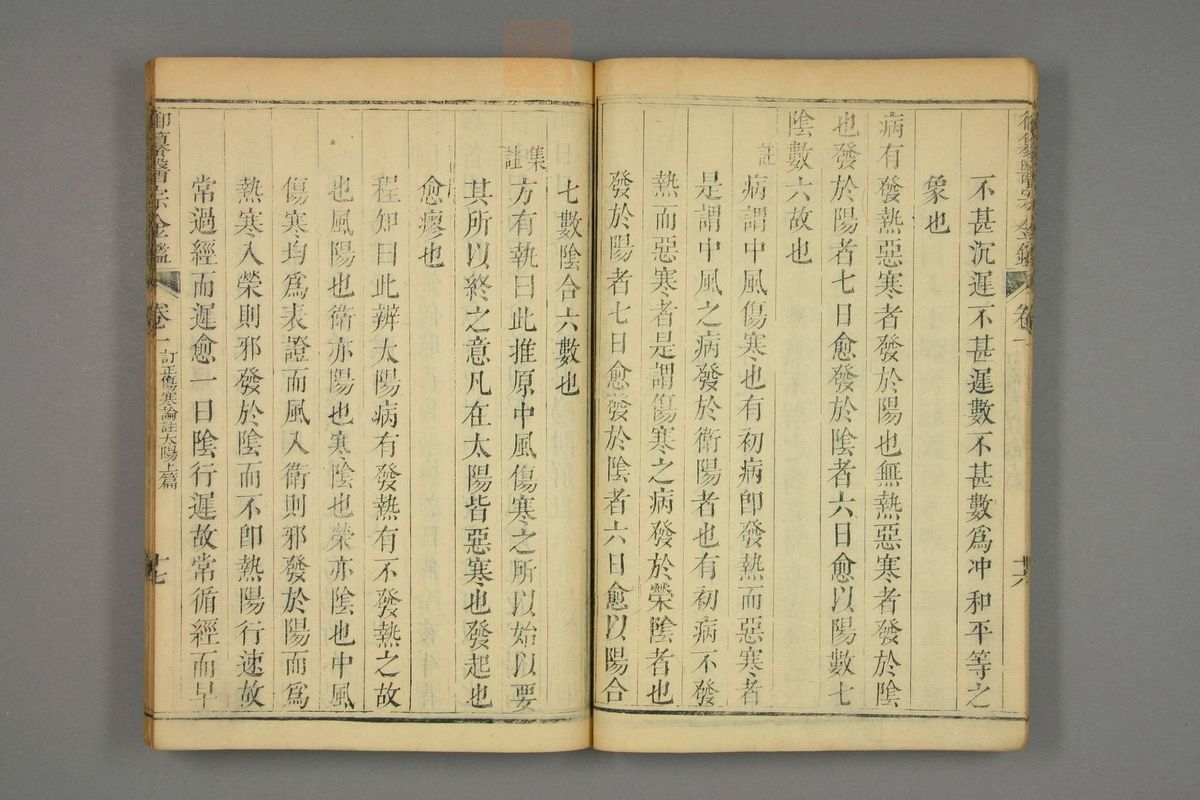 不甚沉遲不甚遲數不甚數爲冲和平等之
象也
病有發熱惡寒者發於陽也無熱惡寒者發於陰
也發於陽者七日愈發於陰者六日愈以陽數七
陰數六故也
註
病謂中風傷寒也有初病卽發熱而惡寒者
是謂中風之病發於衛陽者也有初病不發
熱而惡寒者是謂傷寒之病發於榮陰者也
發於陽者七日愈發於陰者六日愈以陽合
卷一
十六
七數陰合六數也
集註
方有執曰此推原中風傷寒之所以始以要
其所以終之意凡在太陽皆惡寒也發起也
愈瘳也
程知曰此辨太陽病有發熱有不發熱之故
也風陽也衛亦陽也寒陰也榮亦陰也中風
傷寒均爲表證而風入衛則邪發於陽而爲
熱寒入榮則邪發於陰而不卽熱陽行速故
常過經而遲愈一日陰行遲故常循經而早
御纂醫宗金鑑
卷一
訂正傷寒論註太陽上篇
十七